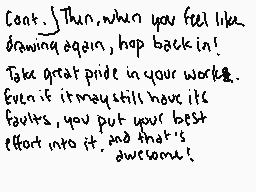 Cont.} Then, when you feel like
drawing again, hop back in!
Take great pride in your work.
Even if it may still have its
faults, you put your best
effort into it, and that's
awesome!